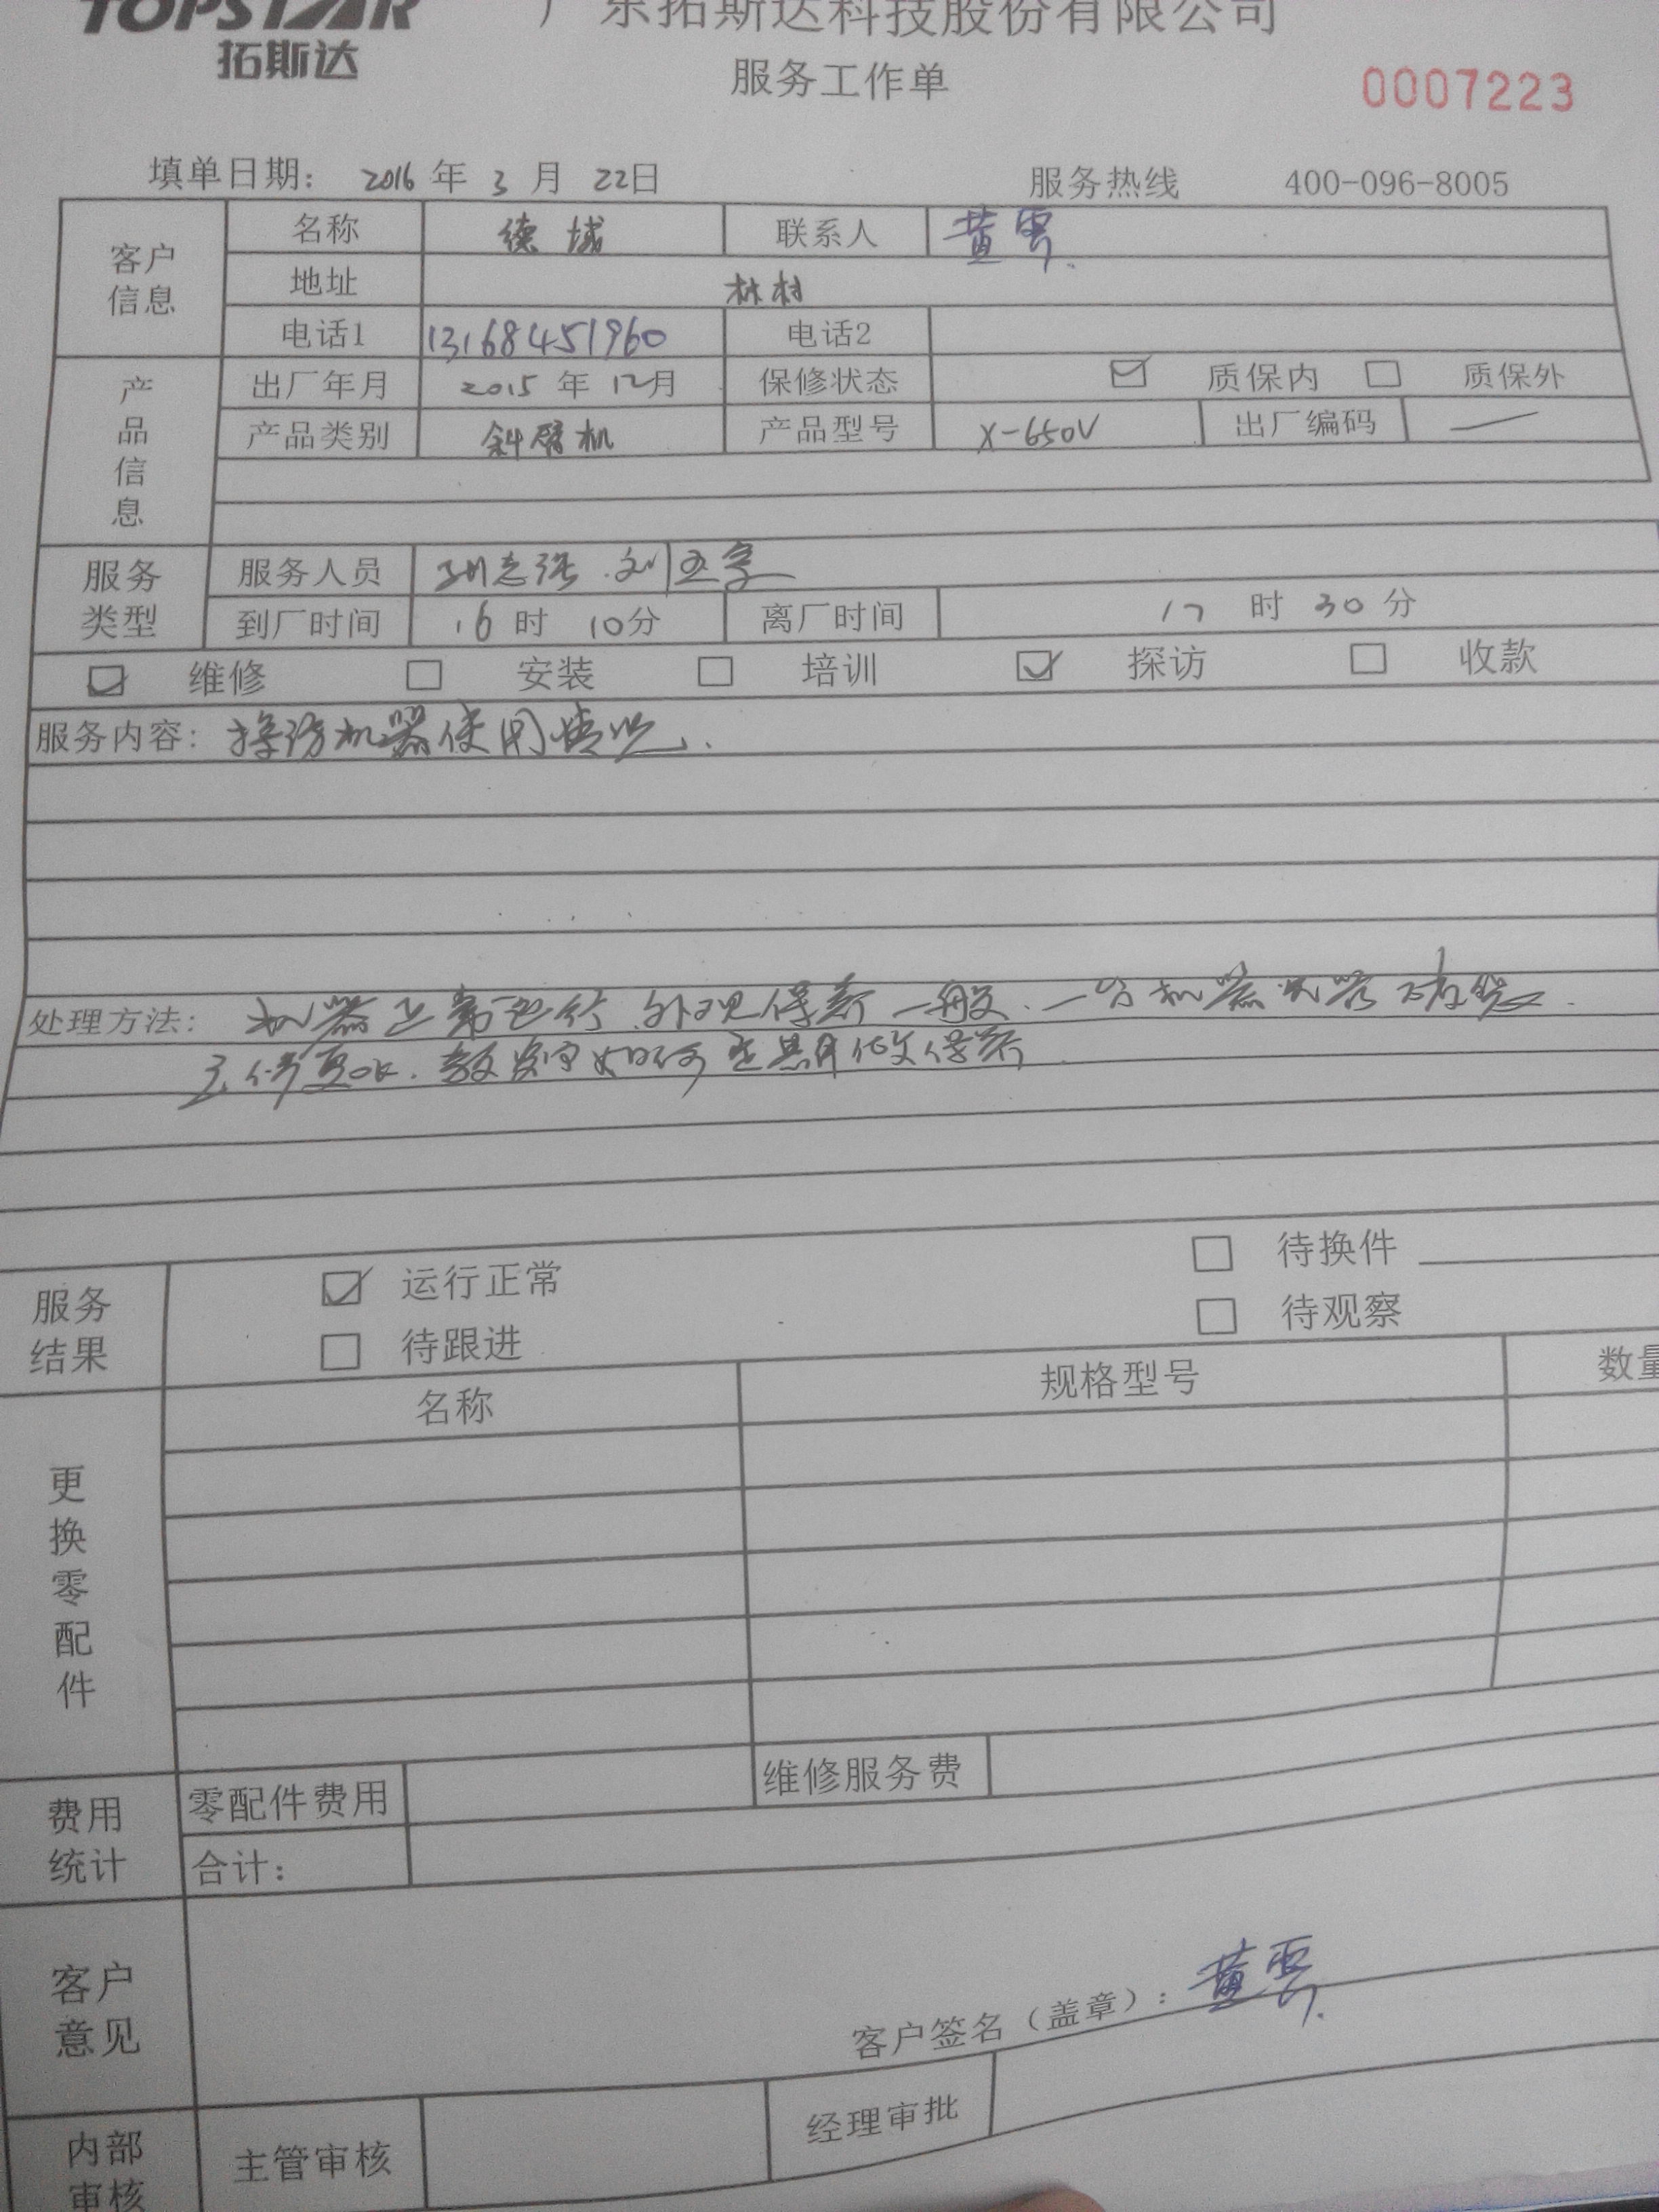 TOPSTAR 广东拓斯达科技股份有限公司
拓斯达
服务工作单
0007223
填单日期： 2016 年 3 月 22日 服务热线 400-096-8005
客户信息
名称 德城 联系人 黄雾
地址 林村
电话1 13168451960 电话2
产品信息
出厂年月 2015 年 12月 保修状态 质保内 质保外
产品类别 斜臂机 产品型号 X-650V 出厂编码 —
服务类型
服务人员 孙志强.刘
到厂时间 16 时 10分 离厂时间 17 时 30 分
维修 安装 培训 探访 收款
服务内容：探访机器使用情况.
处理方法： 机器正常运行.外观保养一般.一台机器
修复OK.教客户如何定期做保养.
服务结果
运行正常 待换件
待跟进 待观察
更换零配件
名称 规格型号 数量
费用统计
零配件费用 维修服务费
合计：
客户意见
客户签名（盖章）：黄雾
内部审核
主管审核 经理审批